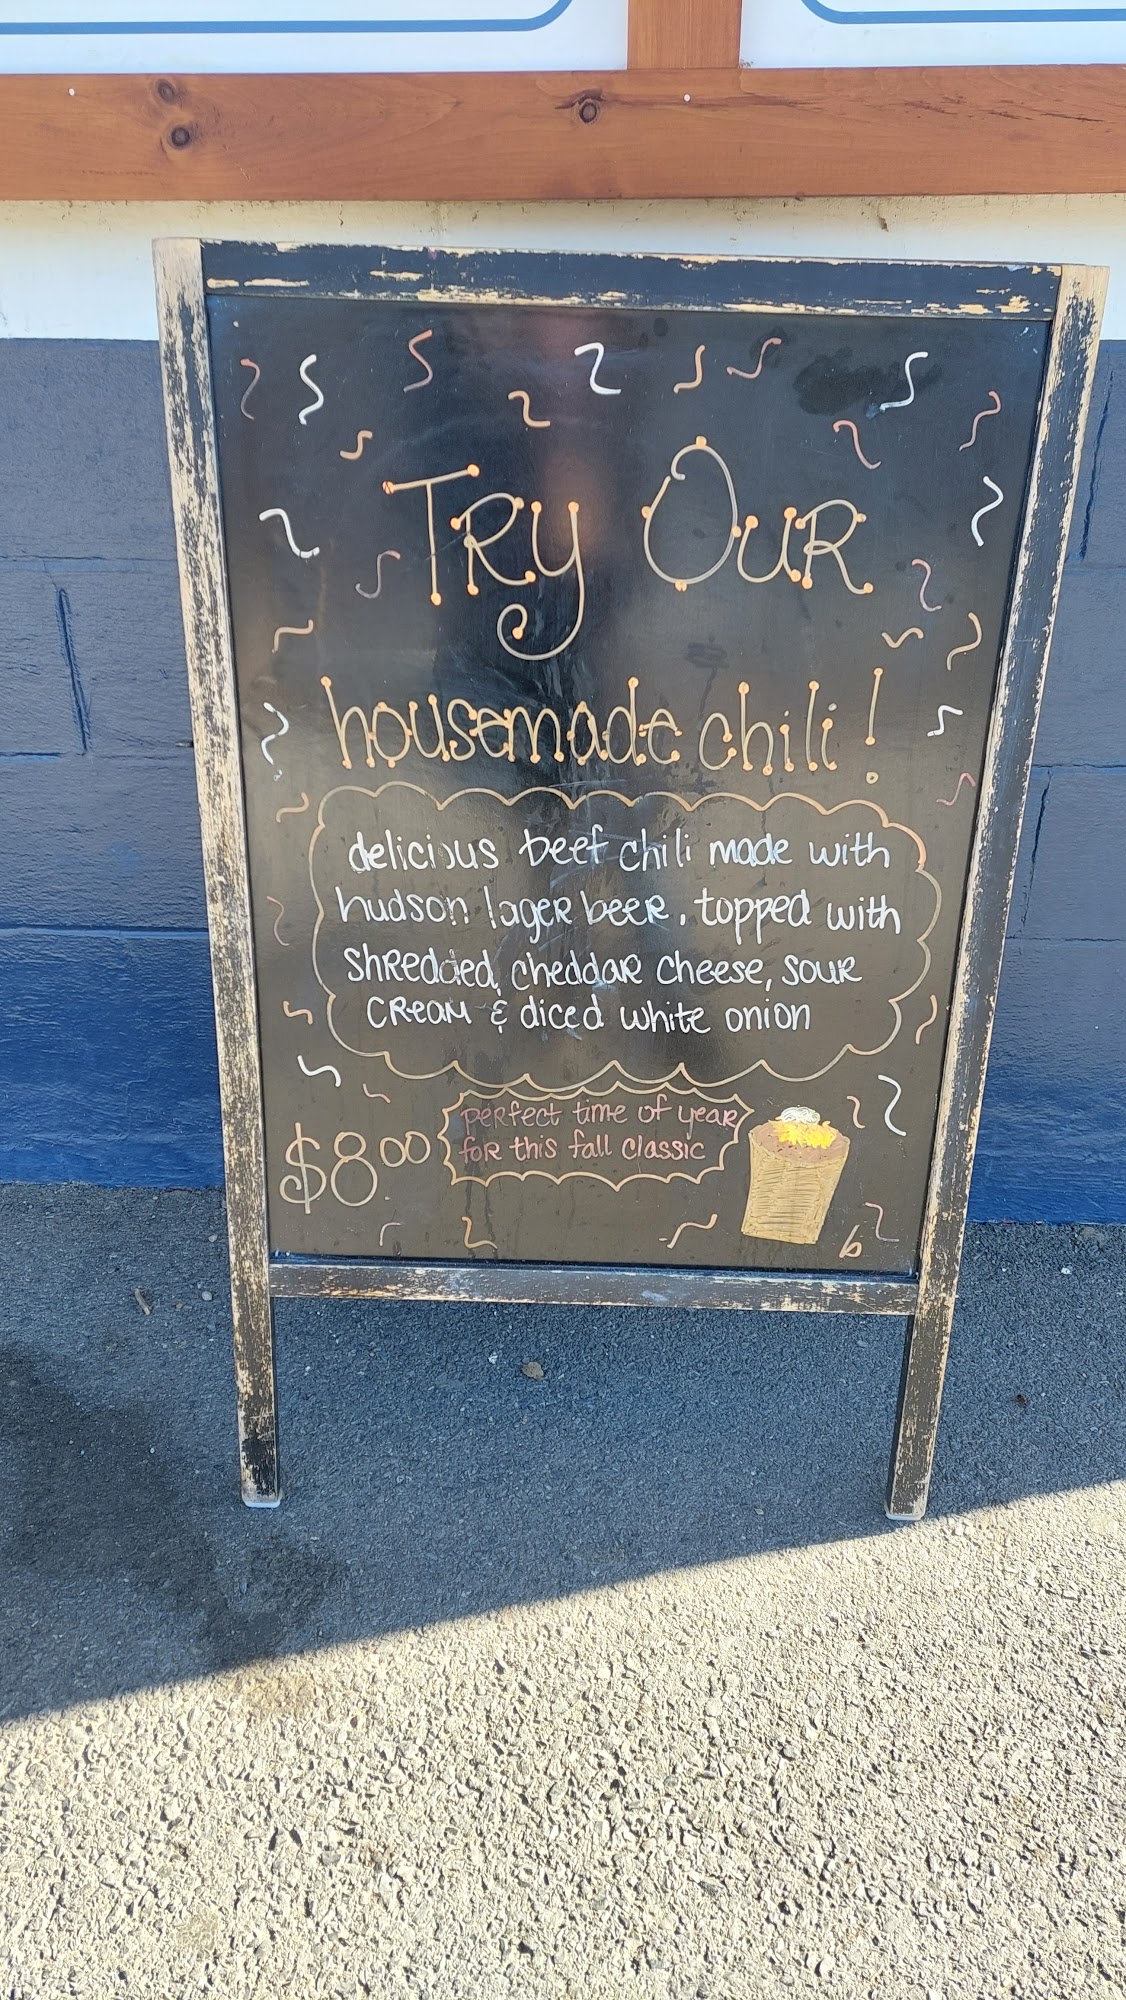 Try Our
housemade chili!
delicious beef chili made with
hudson lager beer, topped with
shredded, cheddar cheese, sour
cream & diced white onion
perfect time of year
for this fall classic
$8.00